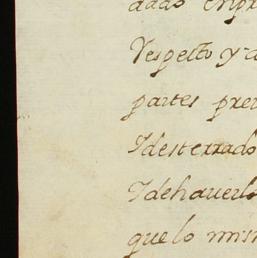 dado en pr
Respecto y a
partes pre
Idesterrado
Idehaverlo
quelo mis